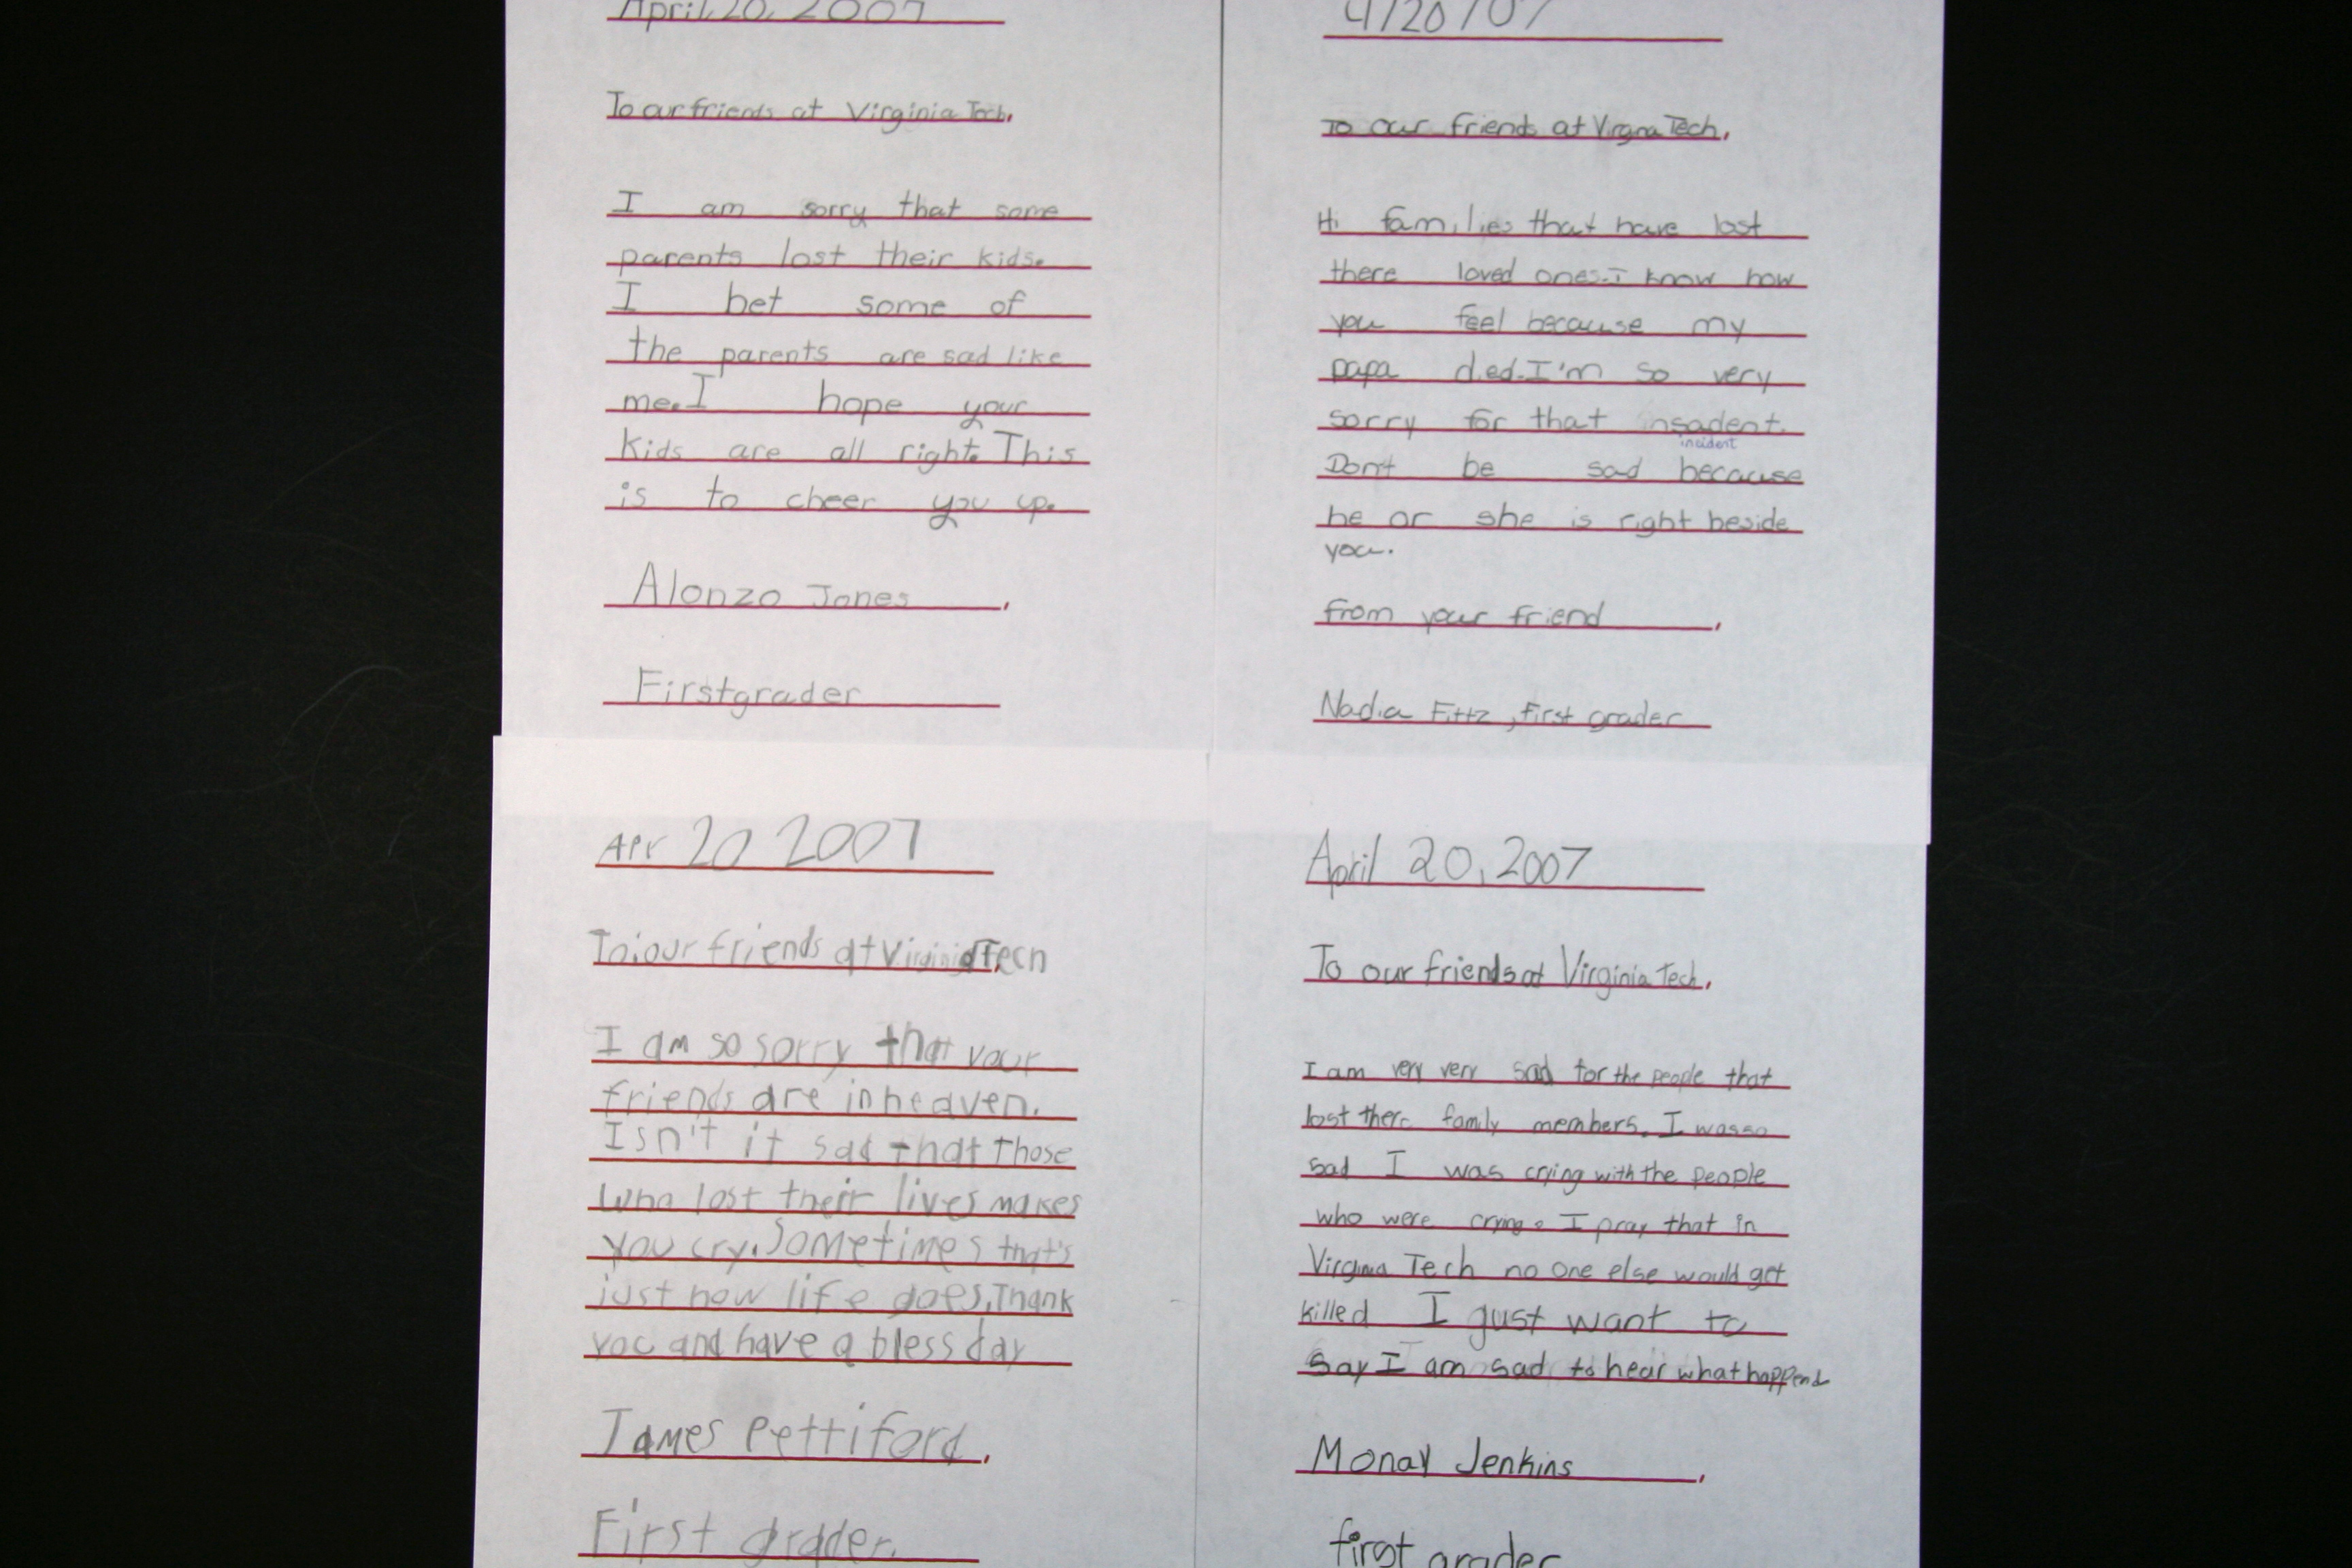 April, 20, 2007
To our friends at Virginia Tech,
I am sorry that some
parents lost their kids.
I bet some of
the parents are sad like
me. I hope your
kids are all right. This
is to cheer you up.
Alonzo Jones,
Firstgrader
4/20/07
To our friends at Virgna Tech,
Hi families that have lost
there loved ones. I know how
you feel because my
papa died. I'm so very
sorry for that insadent.
incident
Don't be sad because
he or she is right beside
you.
from your friend,
Nadia Fittz, first grader
Apr 20 2007
To: our friends at Virginia Tech
I am so sorry that your
friends are in heaven.
Isn't it sad that those
who lost their lives makes
you cry. Sometimes that's
just how life goes. Thank
you and have a bless day
James Pettiford,
First grader.
April 20, 2007
To our friends at Virginia Tech,
I am very very sad for the people that
lost there family members. I was so
sad I was crying with the people
who were crying. I pray that in
Virgina Tech no one else would get
killed I just want to
say I am sad to hear what happend
Monay Jenkins,
first grader